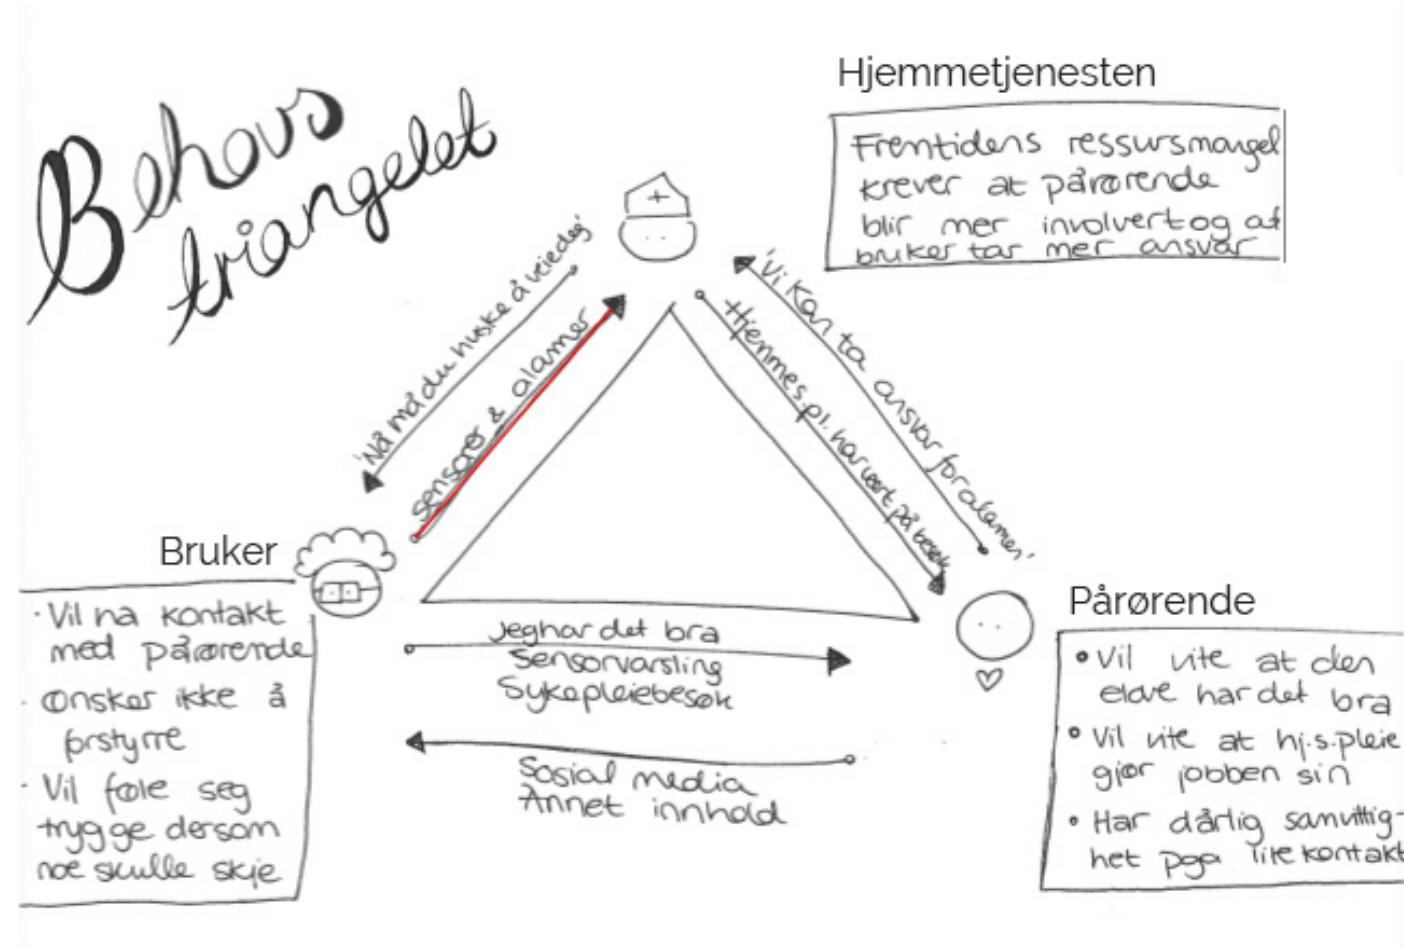 Behovs
triangelet
Hjemmetjenesten
Fremtidens ressursmangel
krever at pårørende
blir mer involvert og at
bruker tar mer ansvar
'Nå må du huske å veie deg'
Sensorer & alarmer
'Vi kan ta ansvar for alarmen'
Hjemmes.pl. har vært på besøk
Bruker
· Vil ha kontakt
med pårørende
· Ønsker ikke å
forstyrre
· Vil føle seg
trygge dersom
noe skulle skje
Jeg har det bra
Sensorvarsling
Sykepleiebesøk
Sosial media
Annet innhold
Pårørende
• Vil vite at den
eldre har det bra
• Vil vite at hj.s.pleie
gjør jobben sin
• Har dårlig samvittig-
het pga lite kontakt